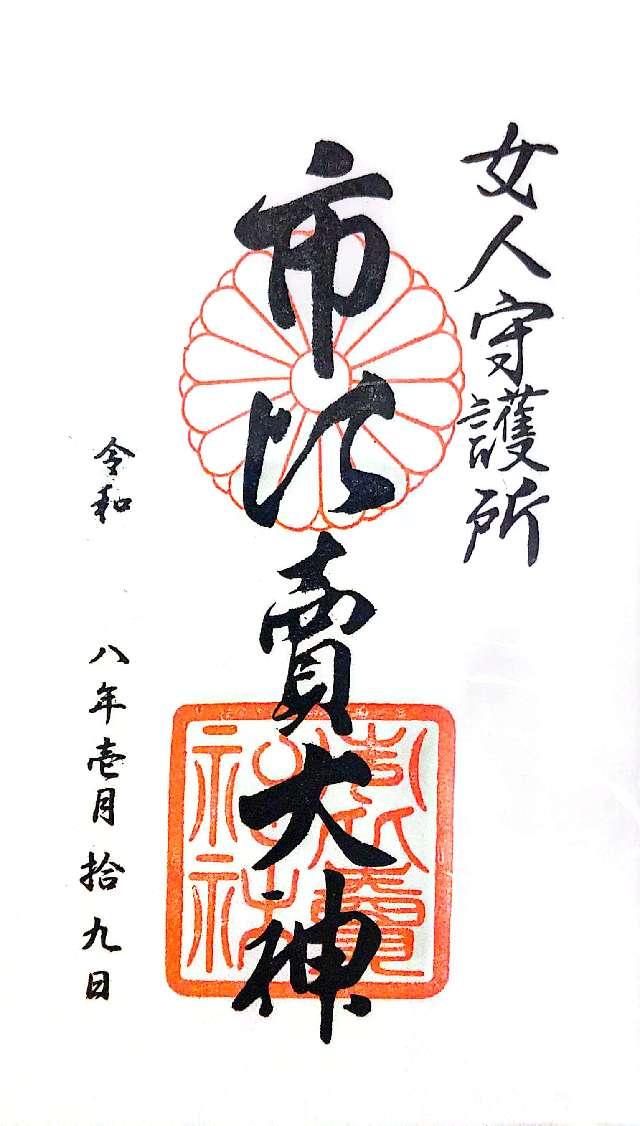 女人守護所
市比賣大神
市比賣神社
令和 八年壱月拾九日